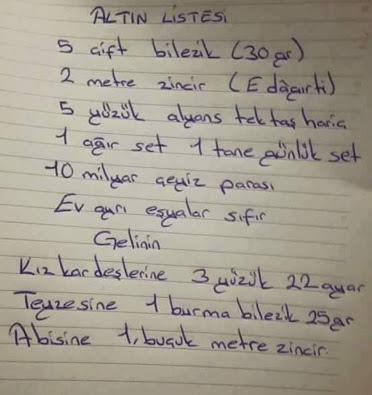 ALTIN LİSTESİ
5 çift bilezik (30 gr)
2 metre zincir (
5 yüzük alyans tektaş hariç
1 ağır set 1 tane günlük set
10 milyar çeyiz parası
Ev ayrı eşyalar sıfır
Gelinin
Kız kardeşlerine 3 yüzük 22 ayar
Teyzesine 1 burma bilezik 25 gr
Abisine 1, buçuk metre zincir.